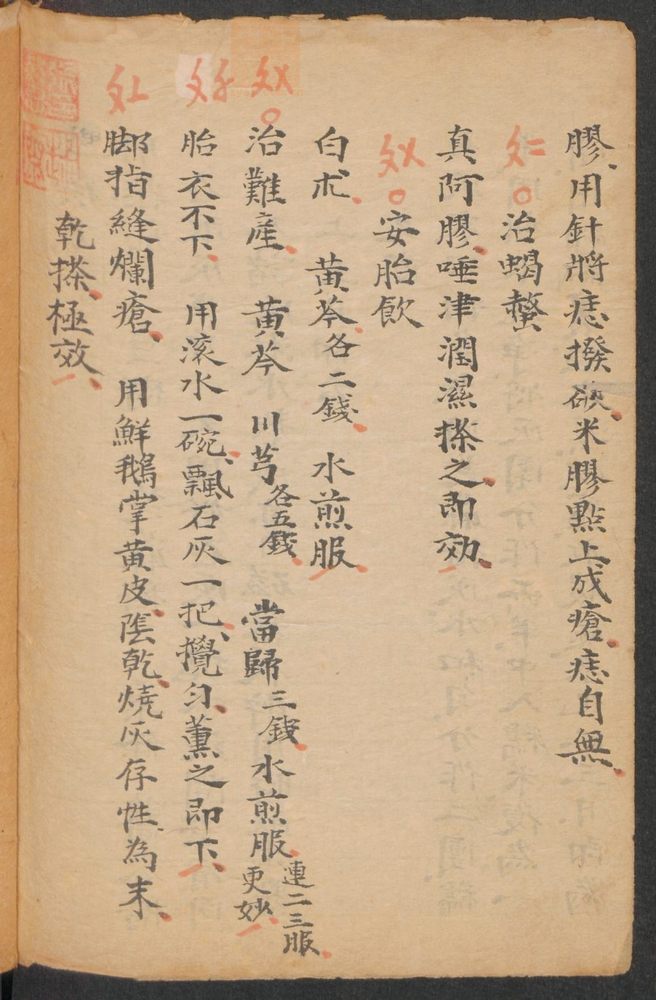 膠、用針將痣撥破、米膠點上成瘡、痣自無、
治蝎螫
真阿膠、唾津潤濕搽之、即効、
安胎飲
白朮、黄芩、各二錢、水煎服、
治難產、黄芩 川芎 各五錢、當歸 三錢、水煎服、連二三服更妙、
胎衣不下、用滚水一碗、飄石灰一把、攪匀、薰之即下、
脚指縫爛瘡、用鮮鵝掌黄皮、陰乾、燒灰存性、為末、
乾搽、極效、